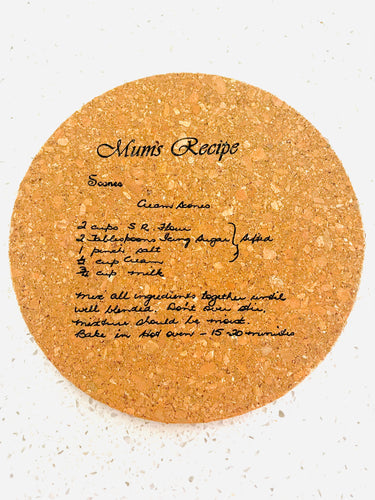 Mum's Recipe
Scones
Cream Scones
2 cups S R Flour
2 Tablespoons Icing Sugar } Sifted
1 pinch salt
cup Cream
cup milk
Mix all ingredients together until
well blended. Dont over stir,
mixture should be moist.
Bake in Hot oven - 15-20 minutes